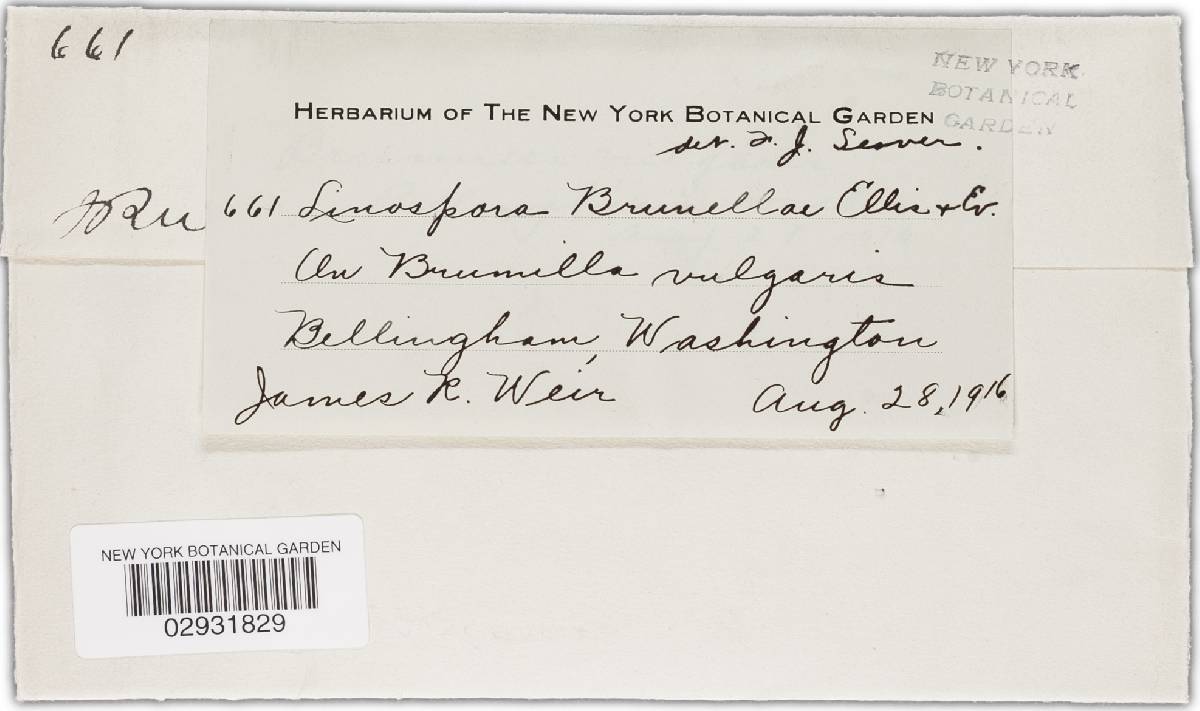 661
NEW YORK
BOTANICAL
GARDEN
HERBARIUM OF THE NEW YORK BOTANICAL GARDEN
det. F. J. Seaver.
661 Linospora Brunellae Ellis & Ev.
On Brunnilla vulgaris
Bellingham, Washington
James R. Weir Aug. 28, 1916
NEW YORK BOTANICAL GARDEN
02931829